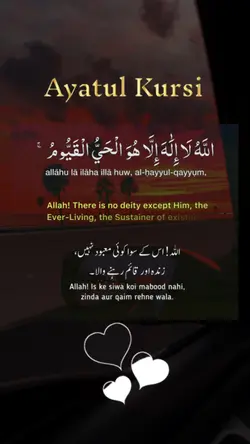 Ayatul Kursi
اللَّهُ لَا إِلَٰهَ إِلَّا هُوَ الْحَيُّ الْقَيُّومُ ۚ
allāhu lā ilāha illā huw, al-ḥayyul-qayyum,
Allah! There is no deity except Him, the
Ever-Living, the Sustainer of
اللہ! اس کے سوا کوئی معبود نہیں،
زندہ اور قائم رہنے والا۔
Allah! Is ke siwa koi mabood nahi,
zinda aur qaim rehne wala.